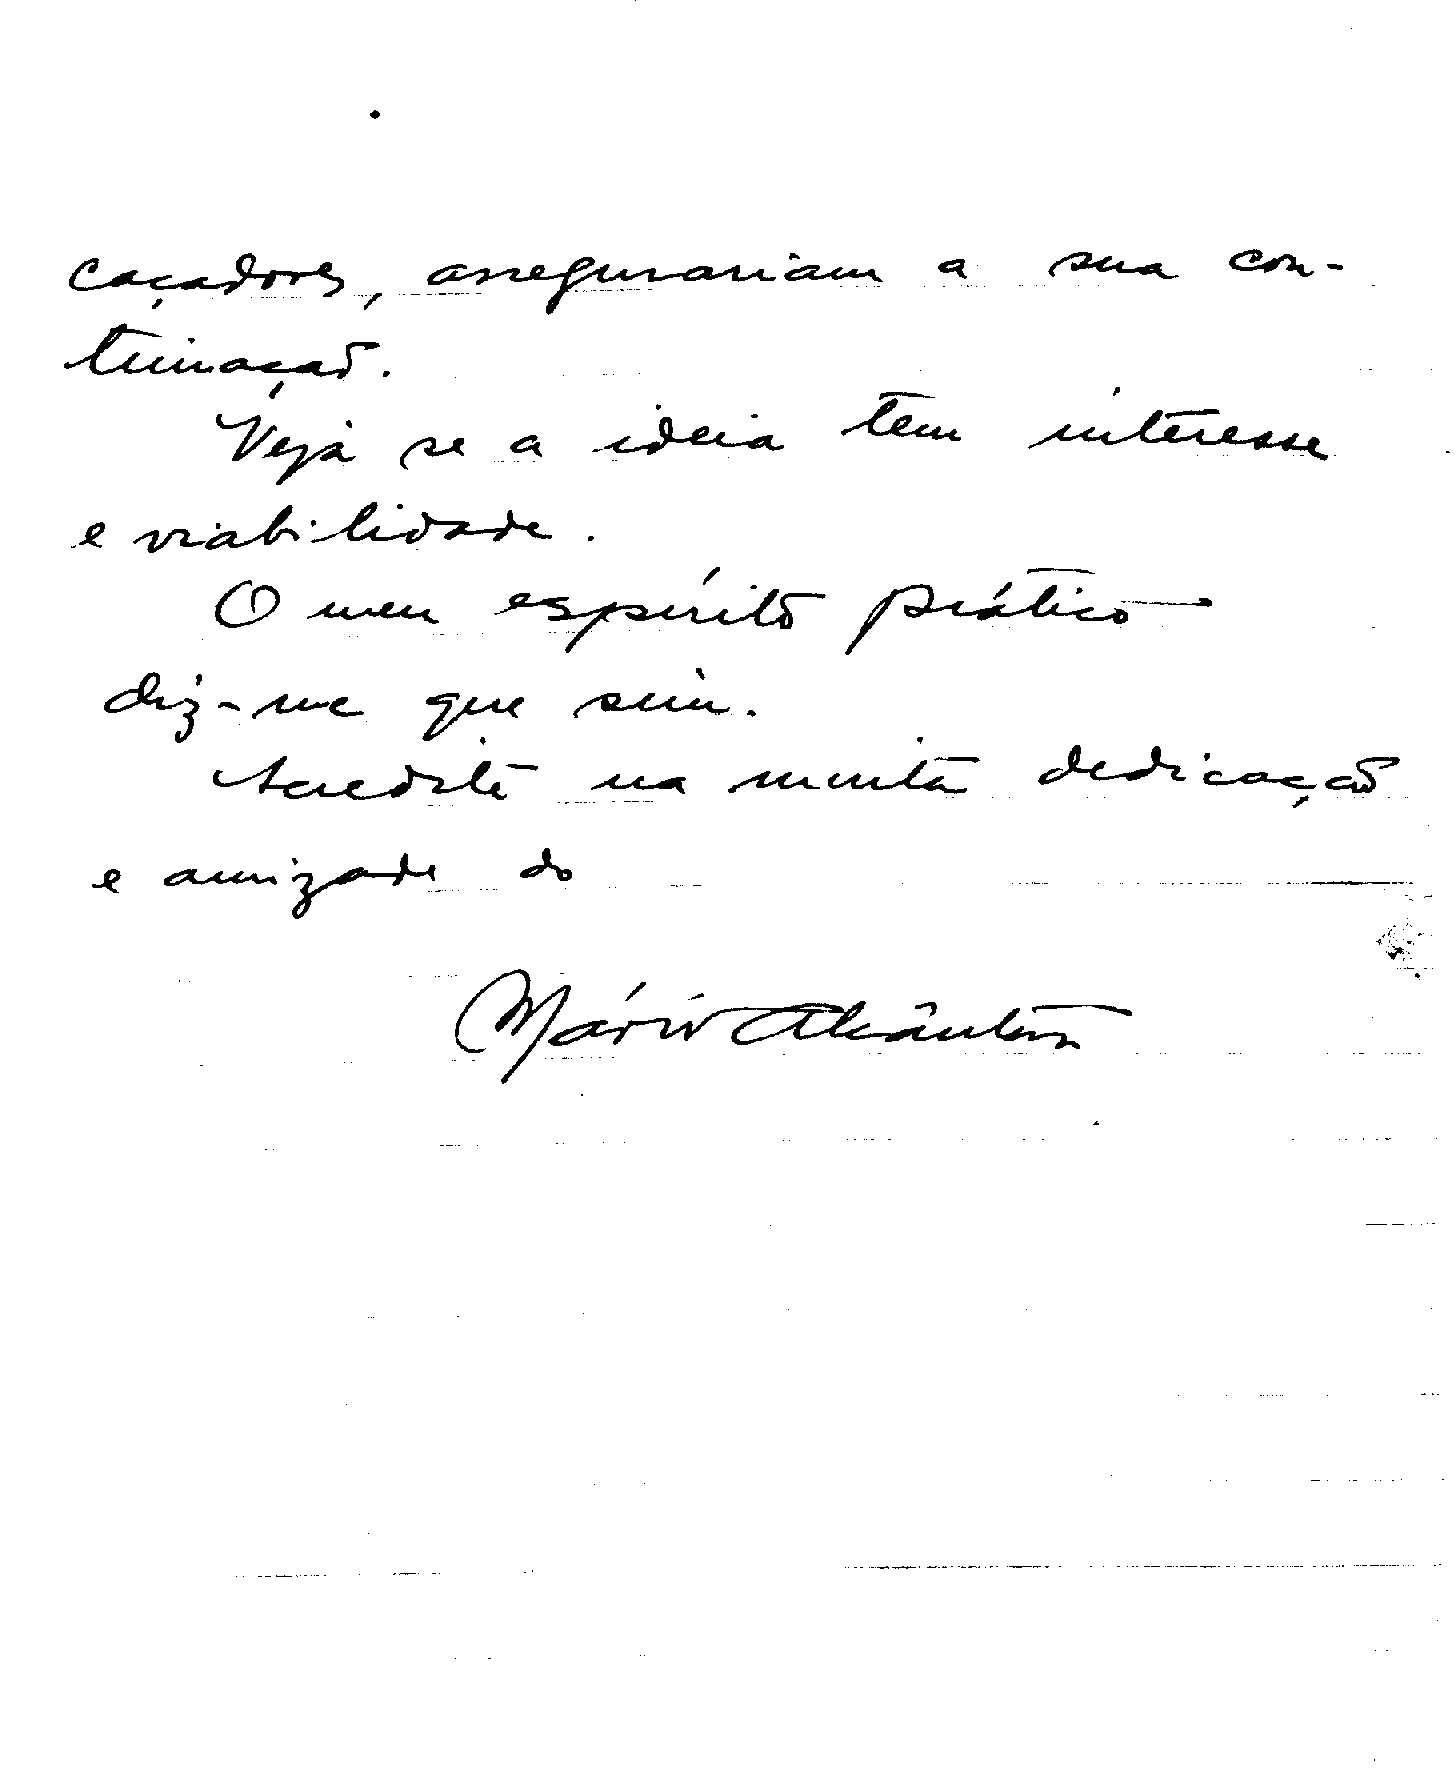 caçadores, assegurariam a sua con-
tinuação.
Veja se a ideia tem interesse
e viabilidade.
O meu espírito prático
diz-me que sim.
Acredite na muita dedicação
e amizade do
Mário Alcântara